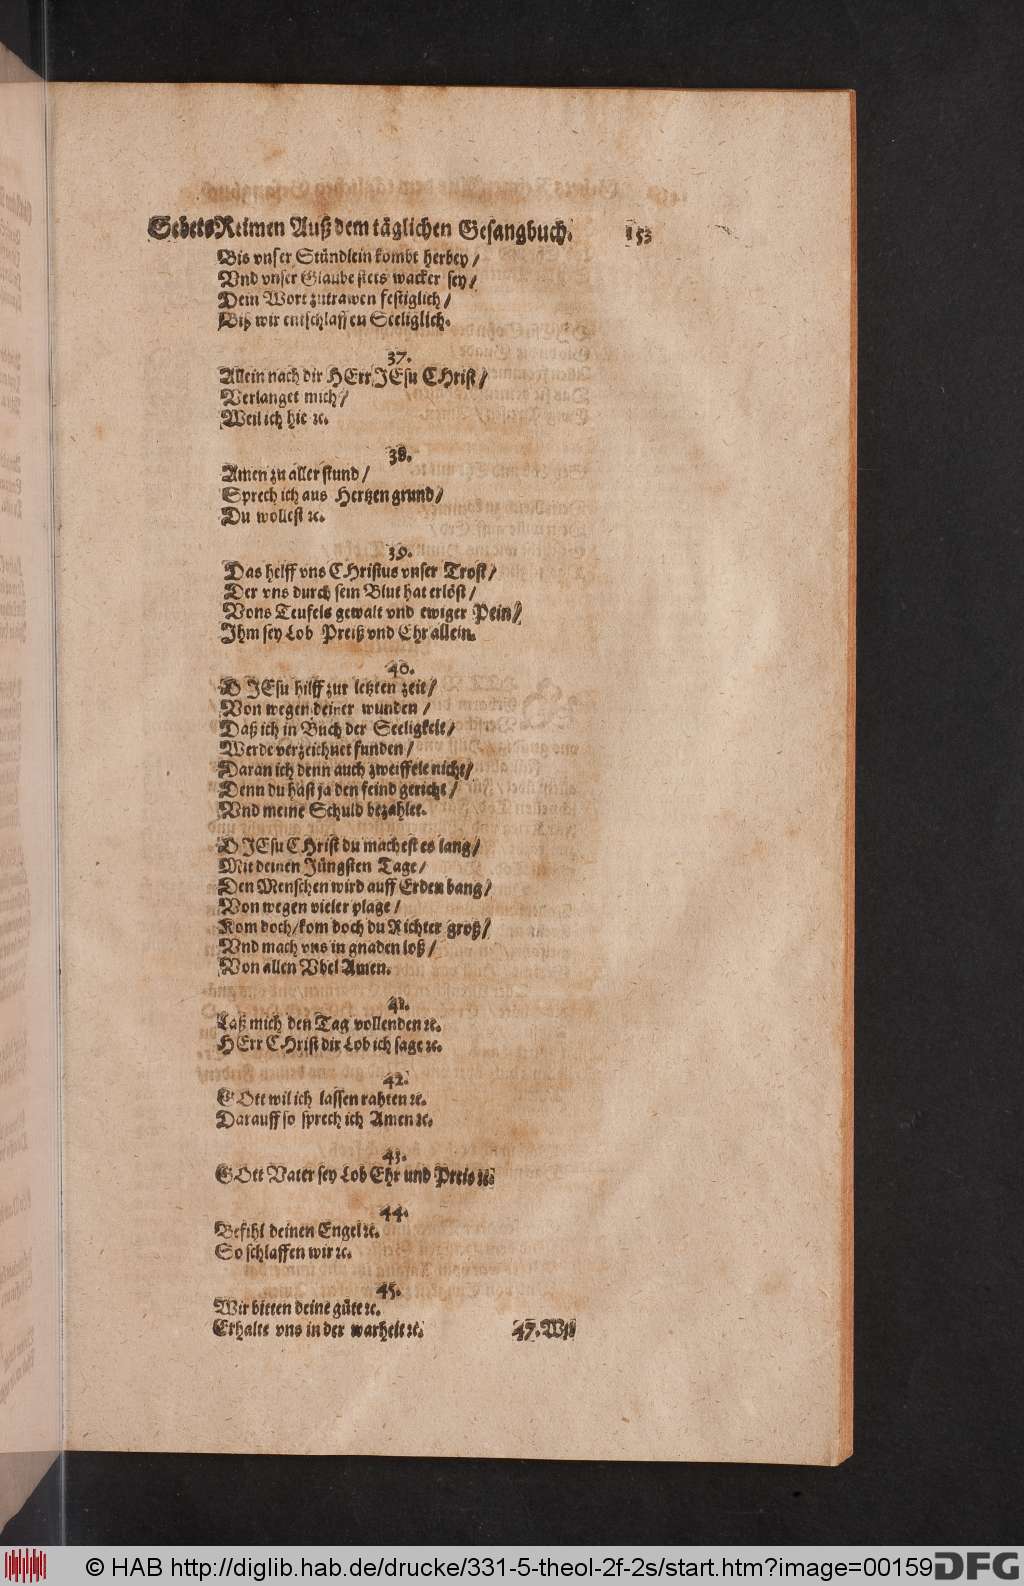 Gebets Reimen Auß dem täglichen Gesangbuch. 153
Bis vnser Stündlein kombt herbey /
Vnd vnser Glaube stets wacker sey /
Dem Wort zutrawen festiglich /
Biß wir entschlaffen Seeliglich.
37.
Allein nach dir HErr JEsu CHrist /
Verlanget mich /
Weil ich hie ꝛc.
38.
Amen zu aller stund /
Sprech ich aus Hertzen grund /
Du wollest ꝛc.
39.
Das helff vns CHristus vnser Trost /
Der vns durch sein Blut hat erlöst /
Vons Teufels gewalt vnd ewiger Pein /
Ihm sey Lob Preiß vnd Ehr allein.
40.
O JEsu hilff zur letzten zeit /
Von wegen deiner wunden /
Daß ich in Buch der Seeligkeit /
Werde verzeichnet funden /
Daran ich denn auch zweiffele nicht /
Denn du hast ja den feind gericht /
Vnd meine Schuld bezahlet.
O JEsu CHrist du machest es lang /
Mit deinen Jüngsten Tage /
Den Menschen wird auff Erden bang /
Von wegen vieler plage /
Kom doch / kom doch du Richter groß /
Vnd mach vns in gnaden loß /
Von allen Vbel Amen.
41.
Laß mich den Tag vollenden ꝛc.
HErr CHrist dir Lob ich sage ꝛc.
42.
GOtt wil ich lassen rahten ꝛc.
Darauff so sprech ich Amen ꝛc.
43.
GOtt Vater sey Lob Ehr und Preis ꝛc.
44.
Befihl deinen Engel ꝛc.
So schlaffen wir ꝛc.
45.
Wir bitten deine güte ꝛc.
Erhalte vns in der warheit ꝛc. 47. Wiß
© HAB http://diglib.hab.de/drucke/331-5-theol-2f-2s/start.htm?image=00159 DFG